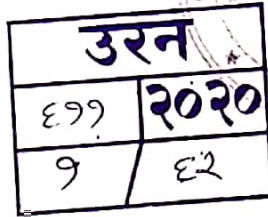 उरन
६११ २०२०
१ / ६२